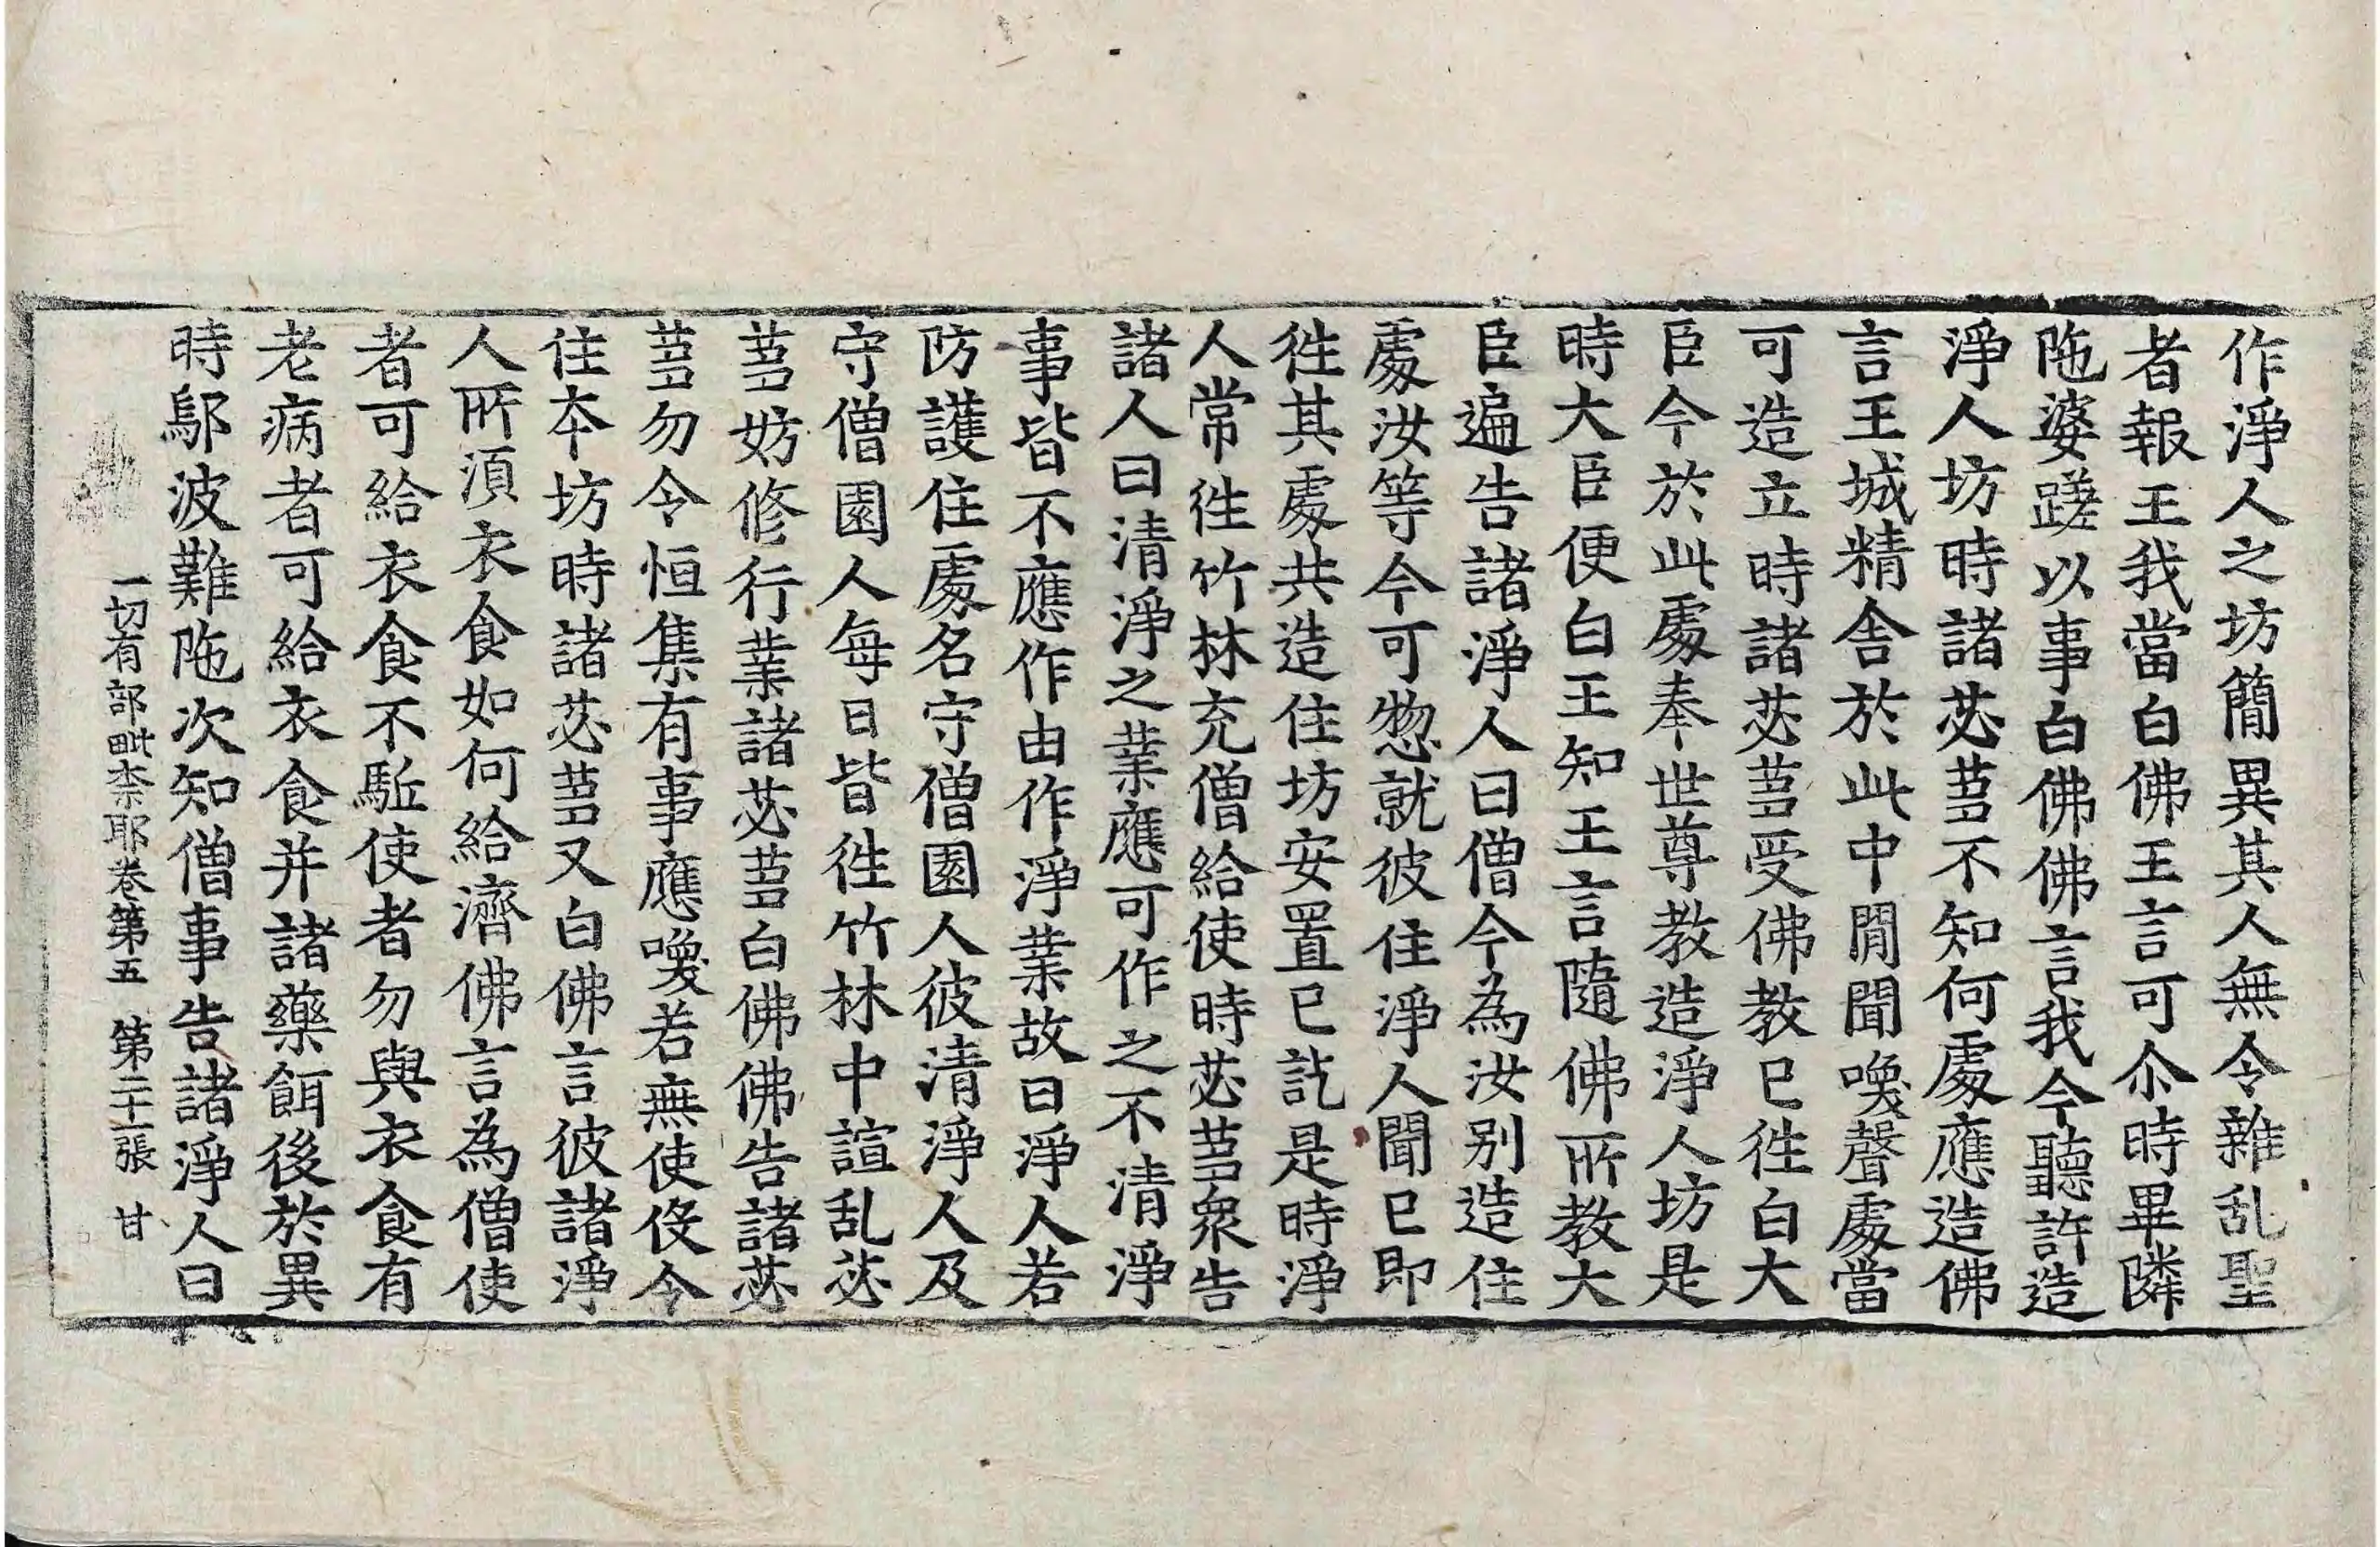 作淨人之坊簡異其人無令雜乱聖
者報王我當白佛王言可尒時畢隣
陁婆蹉以事白佛佛言我今聽許造
淨人坊時諸苾蒭不知何處應造佛
言王城精舎於此中閒聞喚聲處當
可造立時諸苾蒭受佛教已徃白大
臣今於此處奉世尊教造淨人坊是
時大臣便白王知王言隨佛所教大
臣遍告諸淨人曰僧今為汝別造住
處汝等今可惣就彼住淨人聞已即
徃其處共造住坊安置已訖是時淨
人常徃竹林充僧給使時苾蒭衆告
諸人曰清淨之業應可作之不清淨
事皆不應作由作淨業故曰淨人若
防護住處名守僧園人彼清淨人及
守僧園人每日皆徃竹林中諠乱苾
蒭妨修行業諸苾蒭白佛佛告諸苾
蒭勿令恒集有事應喚若無使伇令
住夲坊時諸苾蒭又白佛言彼諸淨
人所湏衣食如何給濟佛言為僧使
者可給衣食不駈使者勿與衣食有
老病者可給衣食并諸藥餌後於異
時鄔波難陁次知僧事告諸淨人曰
一切有部毗柰耶卷第五　第二十一張　甘